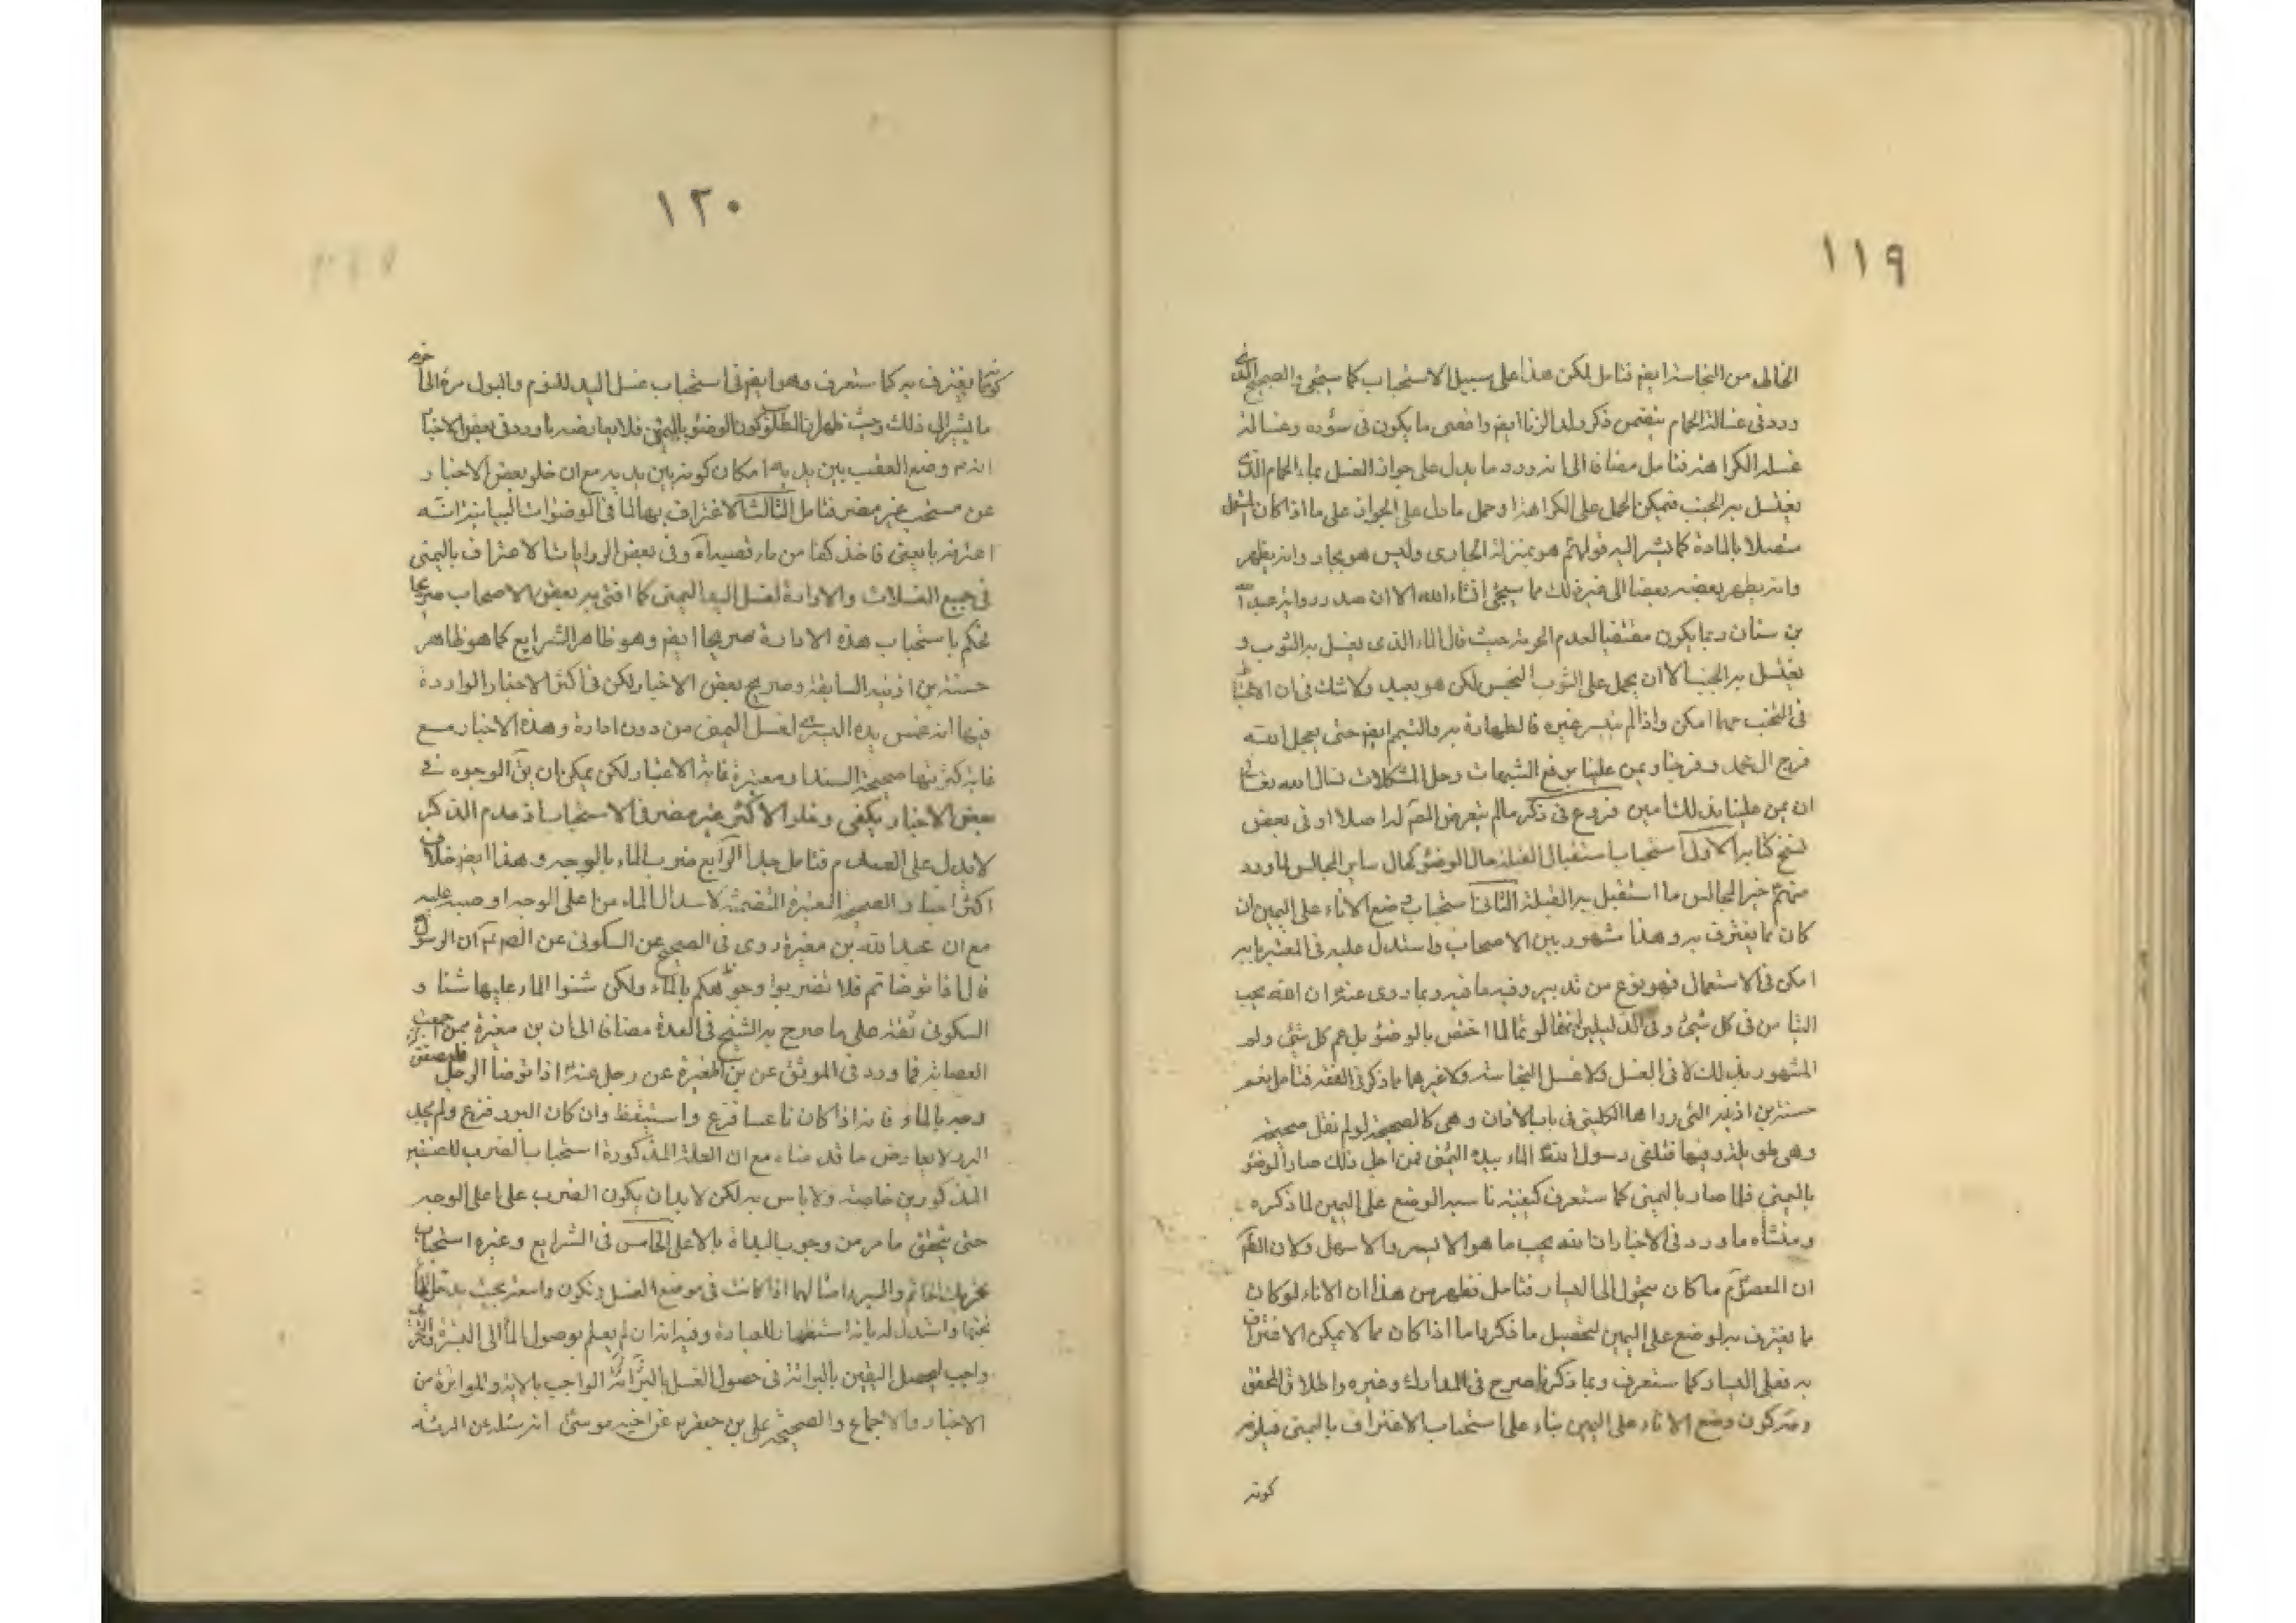 ١١٩
الخالى من النجاسة ايضم فتامل لكن هذا على سبيل الاستحباب كما سيجئ فى الصحيح الذى
ورد فى غسالة الحمام يتضمن ذكر ولد الزنا ايضم واقصى ما يكون فى سؤره وغسالة
غسله الكراهة فتامل مضافا الى انه ورد ما يدل على جواز الغسل بماء الحمام الذى
يغتسل به الجنب فيمكن الحمل على الكراهة او حمل ما دل على الجواز على ما اذا كان
متصلا بالمادة كما يشير اليه قولهم هو بمنزلة الجارى وليس هو بجار وانه يطهر
وانه يطهر بعضه بعضا الى غير ذلك مما سيجئ انشاء الله الا ان صدر رواية عبد الله
بن سنان ربما يكون مقتضيا لعدم الحرمة حيث قال الماء الذى يغسل به الثوب و
يغتسل به الجنب الا ان يحمل على الثوب النجس لكن هو بعيد ولا شك فى ان الاحتياط
فى التجنب مهما امكن واذا لم يتيسر غيره فالطهارة به والتيمم ايضم حتى يعجل الله
فرج ال محمد وفرجنا ويمن علينا برفع الشبهات وحل المشكلات نسال الله تعالى
ان يمن علينا بذلك امين فروع فى ذكر ما لم يتعرض المصم له اصلا او فى بعض
نسخ كتابه الاول استحباب استقبال القبلة حال الوضوء كحال ساير المجالس لما ورد
منهم خير المجالس ما استقبل به القبلة الثانى استحباب وضع الاناء على اليمين ان
كان مما يغترف به وهذا مشهور بين الاصحاب واستدل عليه فى المعتبر بانه
امكن فى الاستعمال فهو نوع من تدبير وفيه ما فيه وبما روى عنه ان الله يحب
التيامن فى كل شئ وفى الدليلين انهما لو تما لما اختص بالوضوء بل عم كل شئ ولم
المشهور بذلك لا فى الغسل ولا غسل النجاسة ولا غيرها مما ذكر فى الفقه فتامل نعم
حسنة بن اذينه التى رواها الكلينى فى باب الاذان وهى كالصحيحة لو لم نقل صحيحة
وهى طويلة وفيها فتلقى رسول الله الماء بيده اليمنى فمن اجل ذلك صار الوضوء
باليمنى فلما صار باليمنى كما ستعرف كيفيته ناسبه الوضع على اليمين لما ذكره
ومنشأه ما ورد فى الاخبار ان الله يحب ما هو الايسر والاسهل ولان الظم
ان المعصوم ما كان يحول الى اليسار فتامل فظهر من هذا ان الاناء لو كان
ما يغترف به لوضع على اليمين لتحصيل ما ذكر واما اذا كان مما لا يمكن الاغتراف
به فعلى اليسار كما ستعرف وبما ذكرنا صرح فى المدارك وغيره واطلاق المحقق
وغيره كون وضع الاناء على اليمين بناء على استحباب الاغتراف باليمنى فيلزم
كونه
١٢٠
كونه مما يغترف به كما ستعرف وهو ايضم فى استحباب غسل اليد للنوم والبول مرة الى اخره
ما يشير الى ذلك وحيث ظهر ان المطلوب كون الوضوء باليمنى فلا يعارضه ما ورد فى بعض الاخبار
انه م وضع القعب بين يديه امكان كونه بين يديه مع ان خلو بعض الاخبار
عن مستحب غير مضر فتامل الثالث الاغتراف بها لما فى الوضوات البيانية انه
اغترف باليمنى فاخذ كفا من ماء قصيداه وفى بعض الروايات الاغتراف باليمنى
فى جميع الغسلات والادارة لغسل اليد اليمنى كما افتى به بعض الاصحاب صريحا
بحكم باستحباب هذه الادارة صريحا ايضم وهو ظاهر الشرايع كما هو ظاهر
حسنة بن اذينه السابقة وصريح بعض الاخبار لكن فى اكثر الاخبار الواردة
فيها انه غمس يده اليسرى لغسل اليمنى من دون ادارة وهذه الاخبار مع
غاية كثرتها صحيحة السند او معتبرة غاية الاعتبار لكن يمكن ان يق الوجوه فى
بعض الاخبار يكفى وخلو الاكثر غير مضر فى الاستحباب اذ عدم الذكر
لا يدل على العدم فتامل جدا الرابع ضرب الماء بالوجه وهذا ايضم خلاف
اكثر اخبار الصحيحة المعتبرة المتضمنة لاسدال الماء من اعلى الوجه او صبه عليه
مع ان عبد الله بن مغيرة روى فى الصحيح عن السكونى عن الصم ان الرسول
قال اذا توضاتم فلا تضربوا وجوهكم بالماء ولكن شنوا الماء عليها شنا و
السكونى ثقة على ما صرح به الشيخ فى العدة مضافا الى ان بن مغيرة ممن اجمعت
العصابة فما ورد فى الموثق عن بن المغيرة عن رجل عنه اذا توضأ الرجل فليصفق
وجهه بالماء فانه اذا كان ناعسا فزع واستيقظ وان كان البرد فزع ولم يجد
البرد لا يعارض ما قدمناه مع ان العلة المذكورة استحباب الضرب للصنفين
المذكورين خاصة ولا باس به لكن لابد ان يكون الضرب على اعلى الوجه
حتى يتحقق ما مر من وجوب البداة بالاعلى الخامس فى الشرايع وغيره استحباب
تحريك الخاتم والسير وامثالهما اذا كانت فى موضع الغسل وتكون واسعة بحيث يدخل الماء
تحتها واستدل له بانه استظهار للعبادة وفيه انه ان لم يعلم بوصول الماء الى البشرة فالتحريك
واجب ليحصل اليقين بالبرائة فى حصول الغسل بالبرائة الواجب بالاية والمواترة من
الاخبار والاجماع والصحيحة على بن جعفر عن اخيه موسى انه سئله عن المرئة